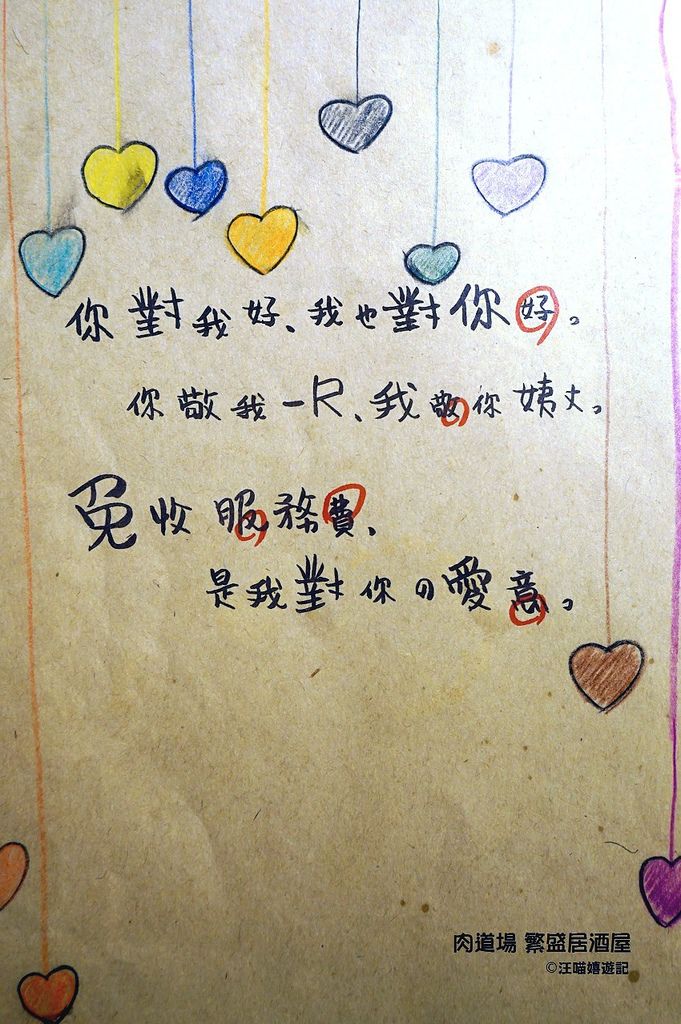 你對我好、我也對你好。
你敬我一R、我敬你姨丈。
免收服務費、
是我對你の愛意。
肉道場 繁盛居酒屋
©汪喵嬉遊記